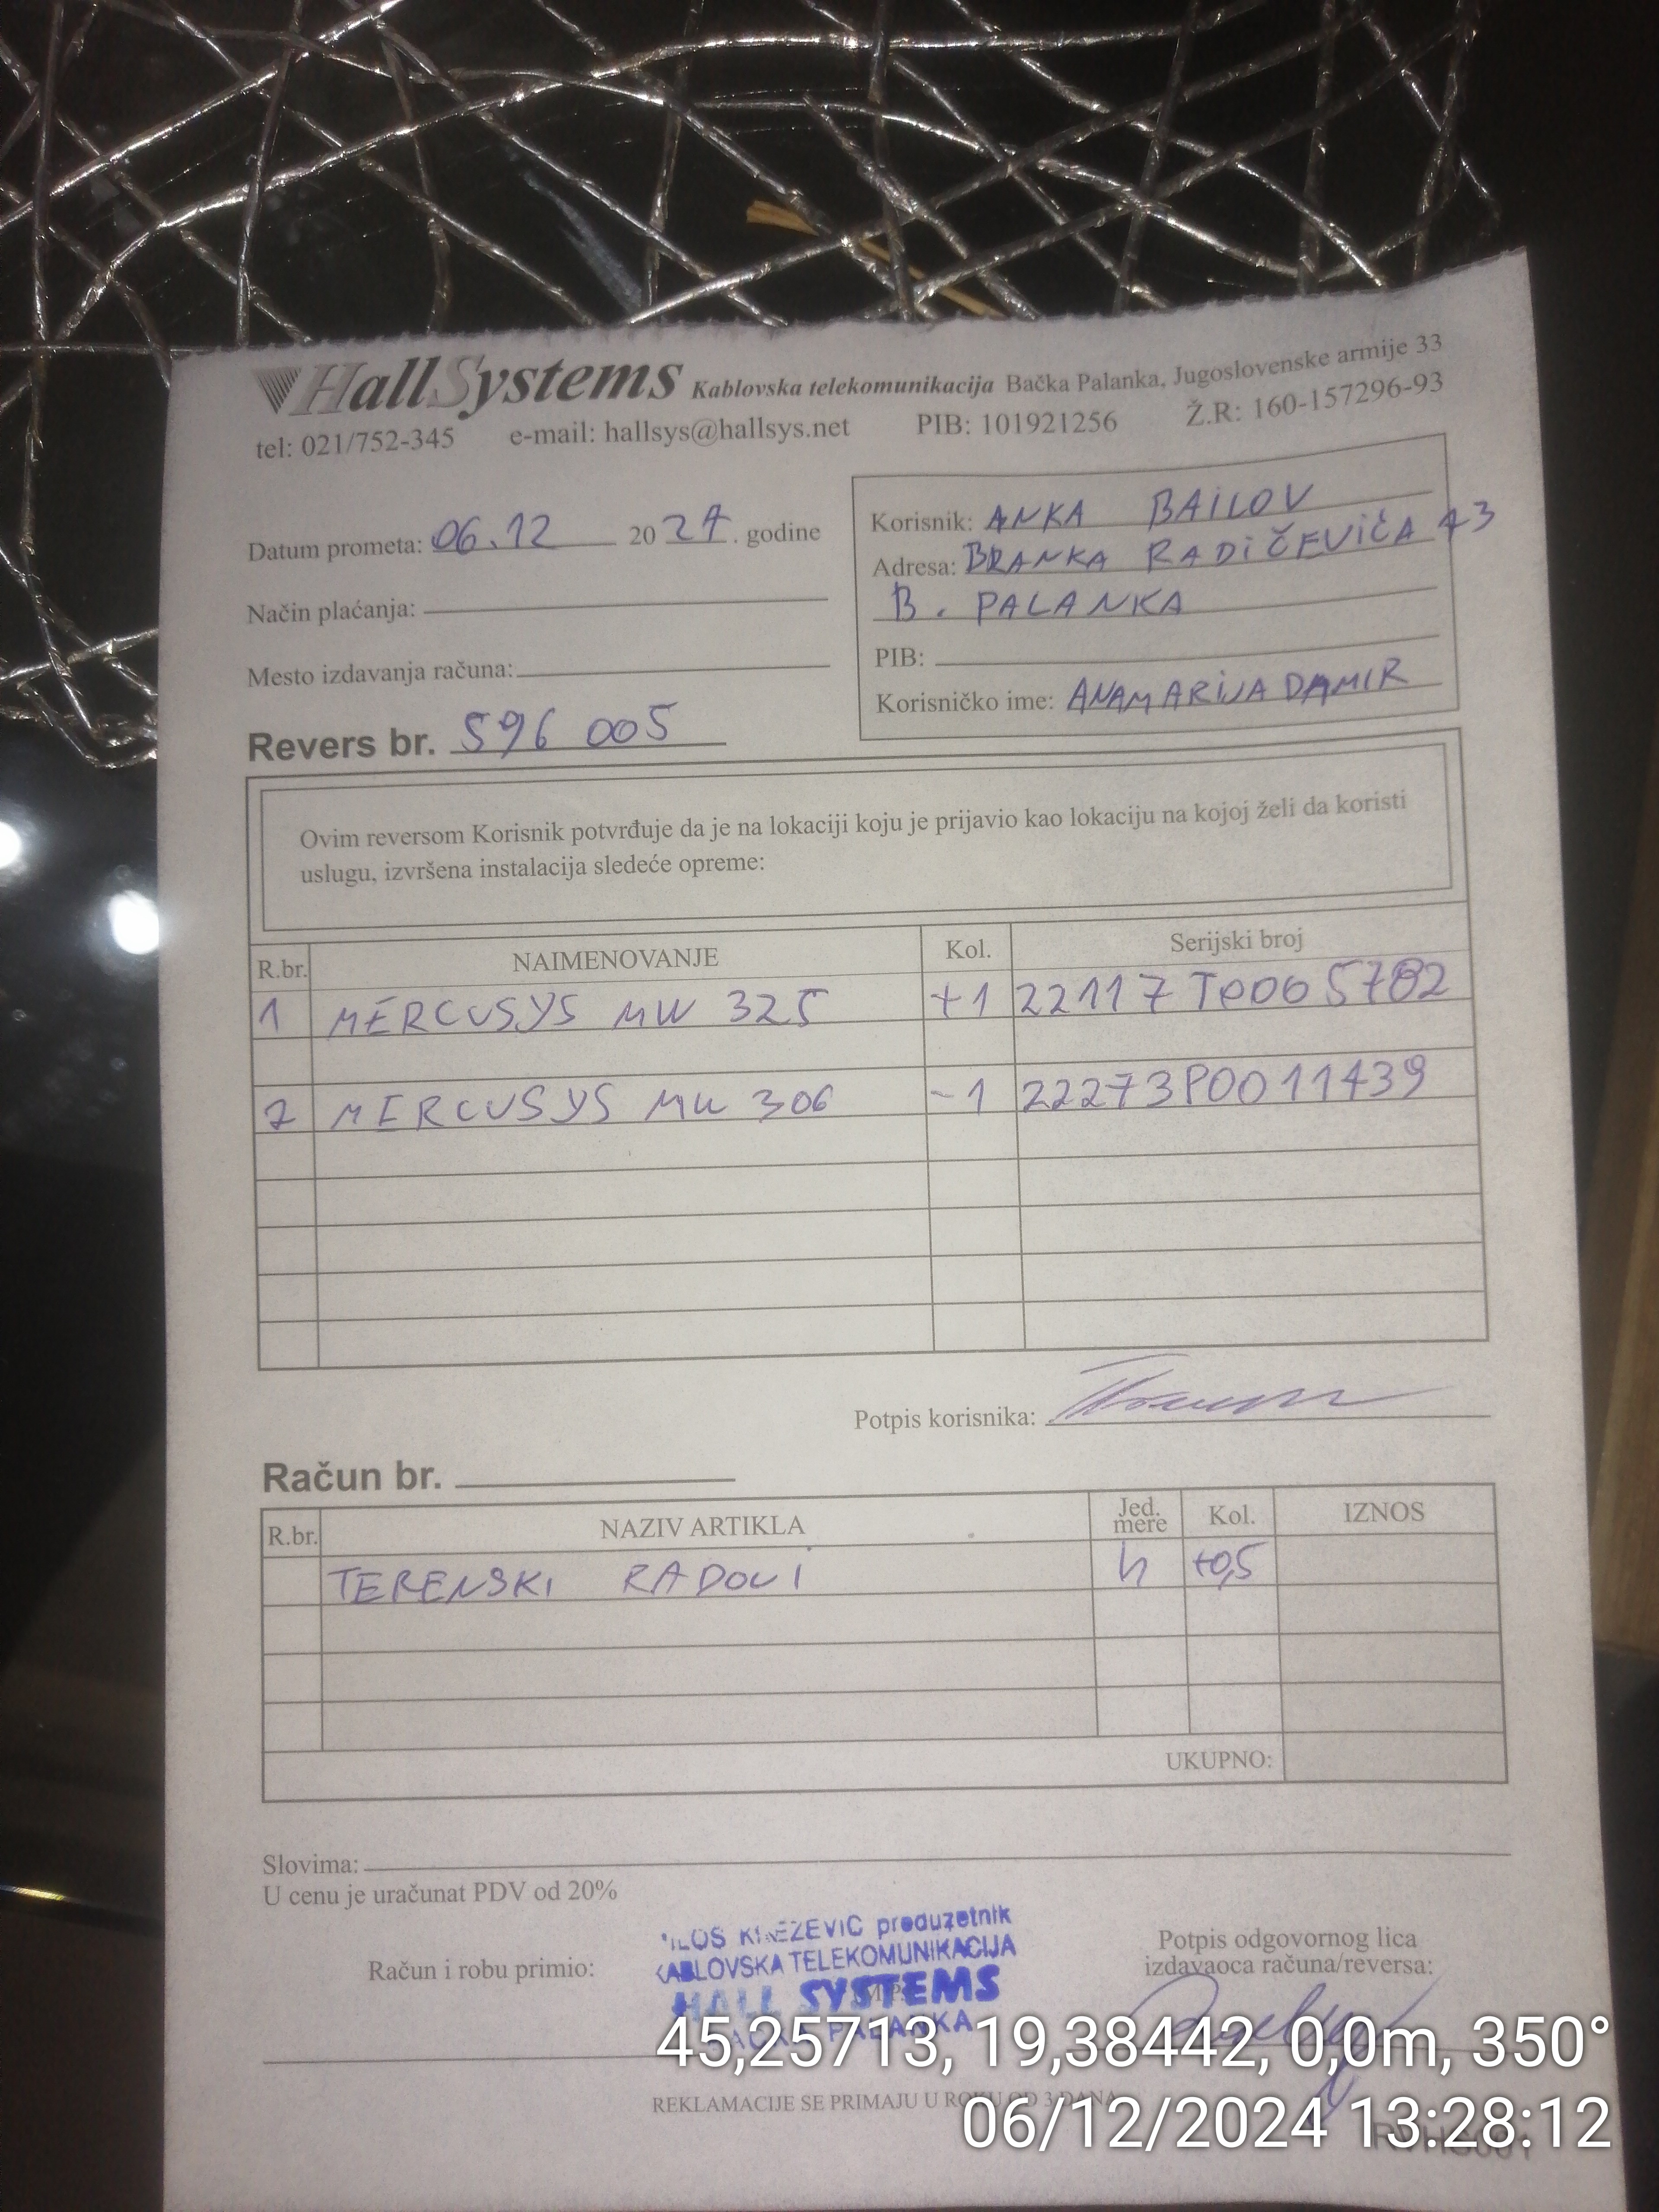 HallSystems Kablovska telekomunikacija Bačka Palanka, Jugoslovenske armije 33
tel: 021/752-345 e-mail: hallsys@hallsys.net PIB: 101921256 Ž.R: 160-157296-93
Datum prometa: 06.12 2024. godine
Način plaćanja:
Mesto izdavanja računa:
Revers br. 596 005
Korisnik: ANKA BAILOV
Adresa: BRANKA RADIČEVIĆA 43
B. PALANKA
PIB:
Korisničko ime: ANAMARIJADAMIR
Ovim reversom Korisnik potvrđuje da je na lokaciji koju je prijavio kao lokaciju na kojoj želi da koristi
uslugu, izvršena instalacija sledeće opreme:
R.br. NAIMENOVANJE Kol. Serijski broj
1 MERCUSYS MW 325 +1
2 MERCUSYS MW 306 -1 22273P0011439
Potpis korisnika:
Račun br.
R.br. NAZIV ARTIKLA Jed. mere Kol. IZNOS
TERENSKI RADOVI h +0,5
UKUPNO:
Slovima:
U cenu je uračunat PDV od 20%
Račun i robu primio:
KNEZEVIC preduzetnik
KABLOVSKA TELEKOMUNIKACIJA
HALL SYSTEMS
PALANKA
Potpis odgovornog lica
izdavaoca računa/reversa:
REKLAMACIJE SE PRIMAJU U ROKU OD 3 DANA
45,25713, 19,38442, 0,0m, 350°
06/12/2024 13:28:12